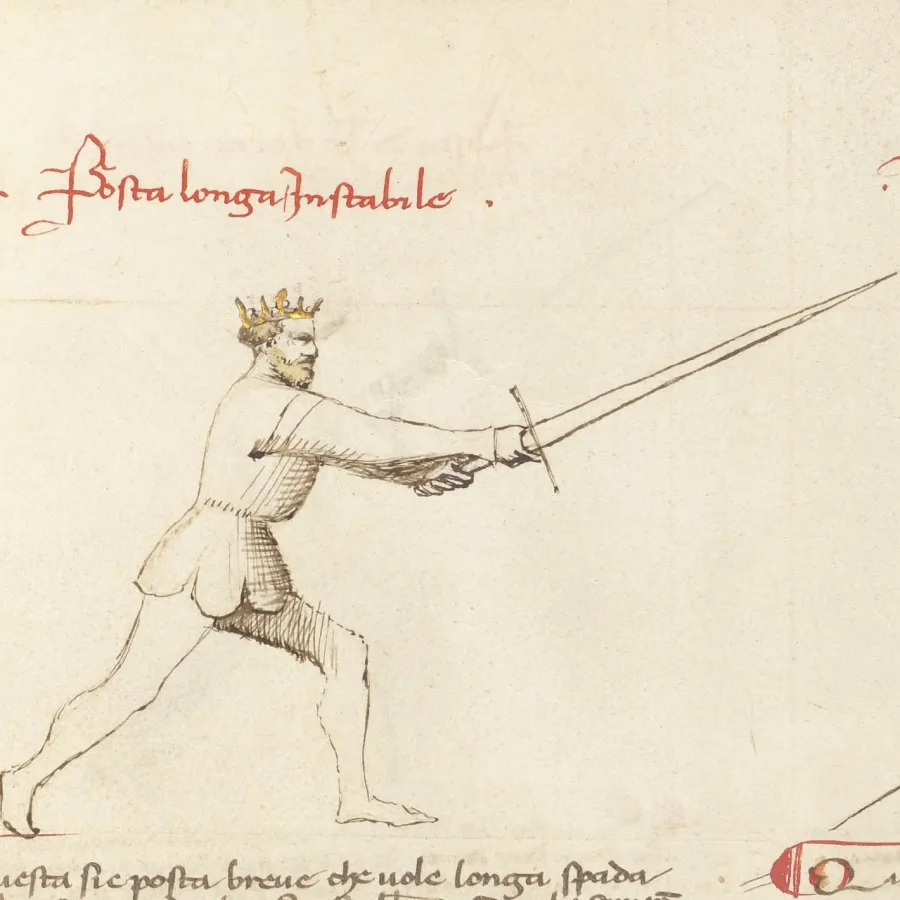 . Posta longa Instabile .
uesta sie posta breue che uole longa spada